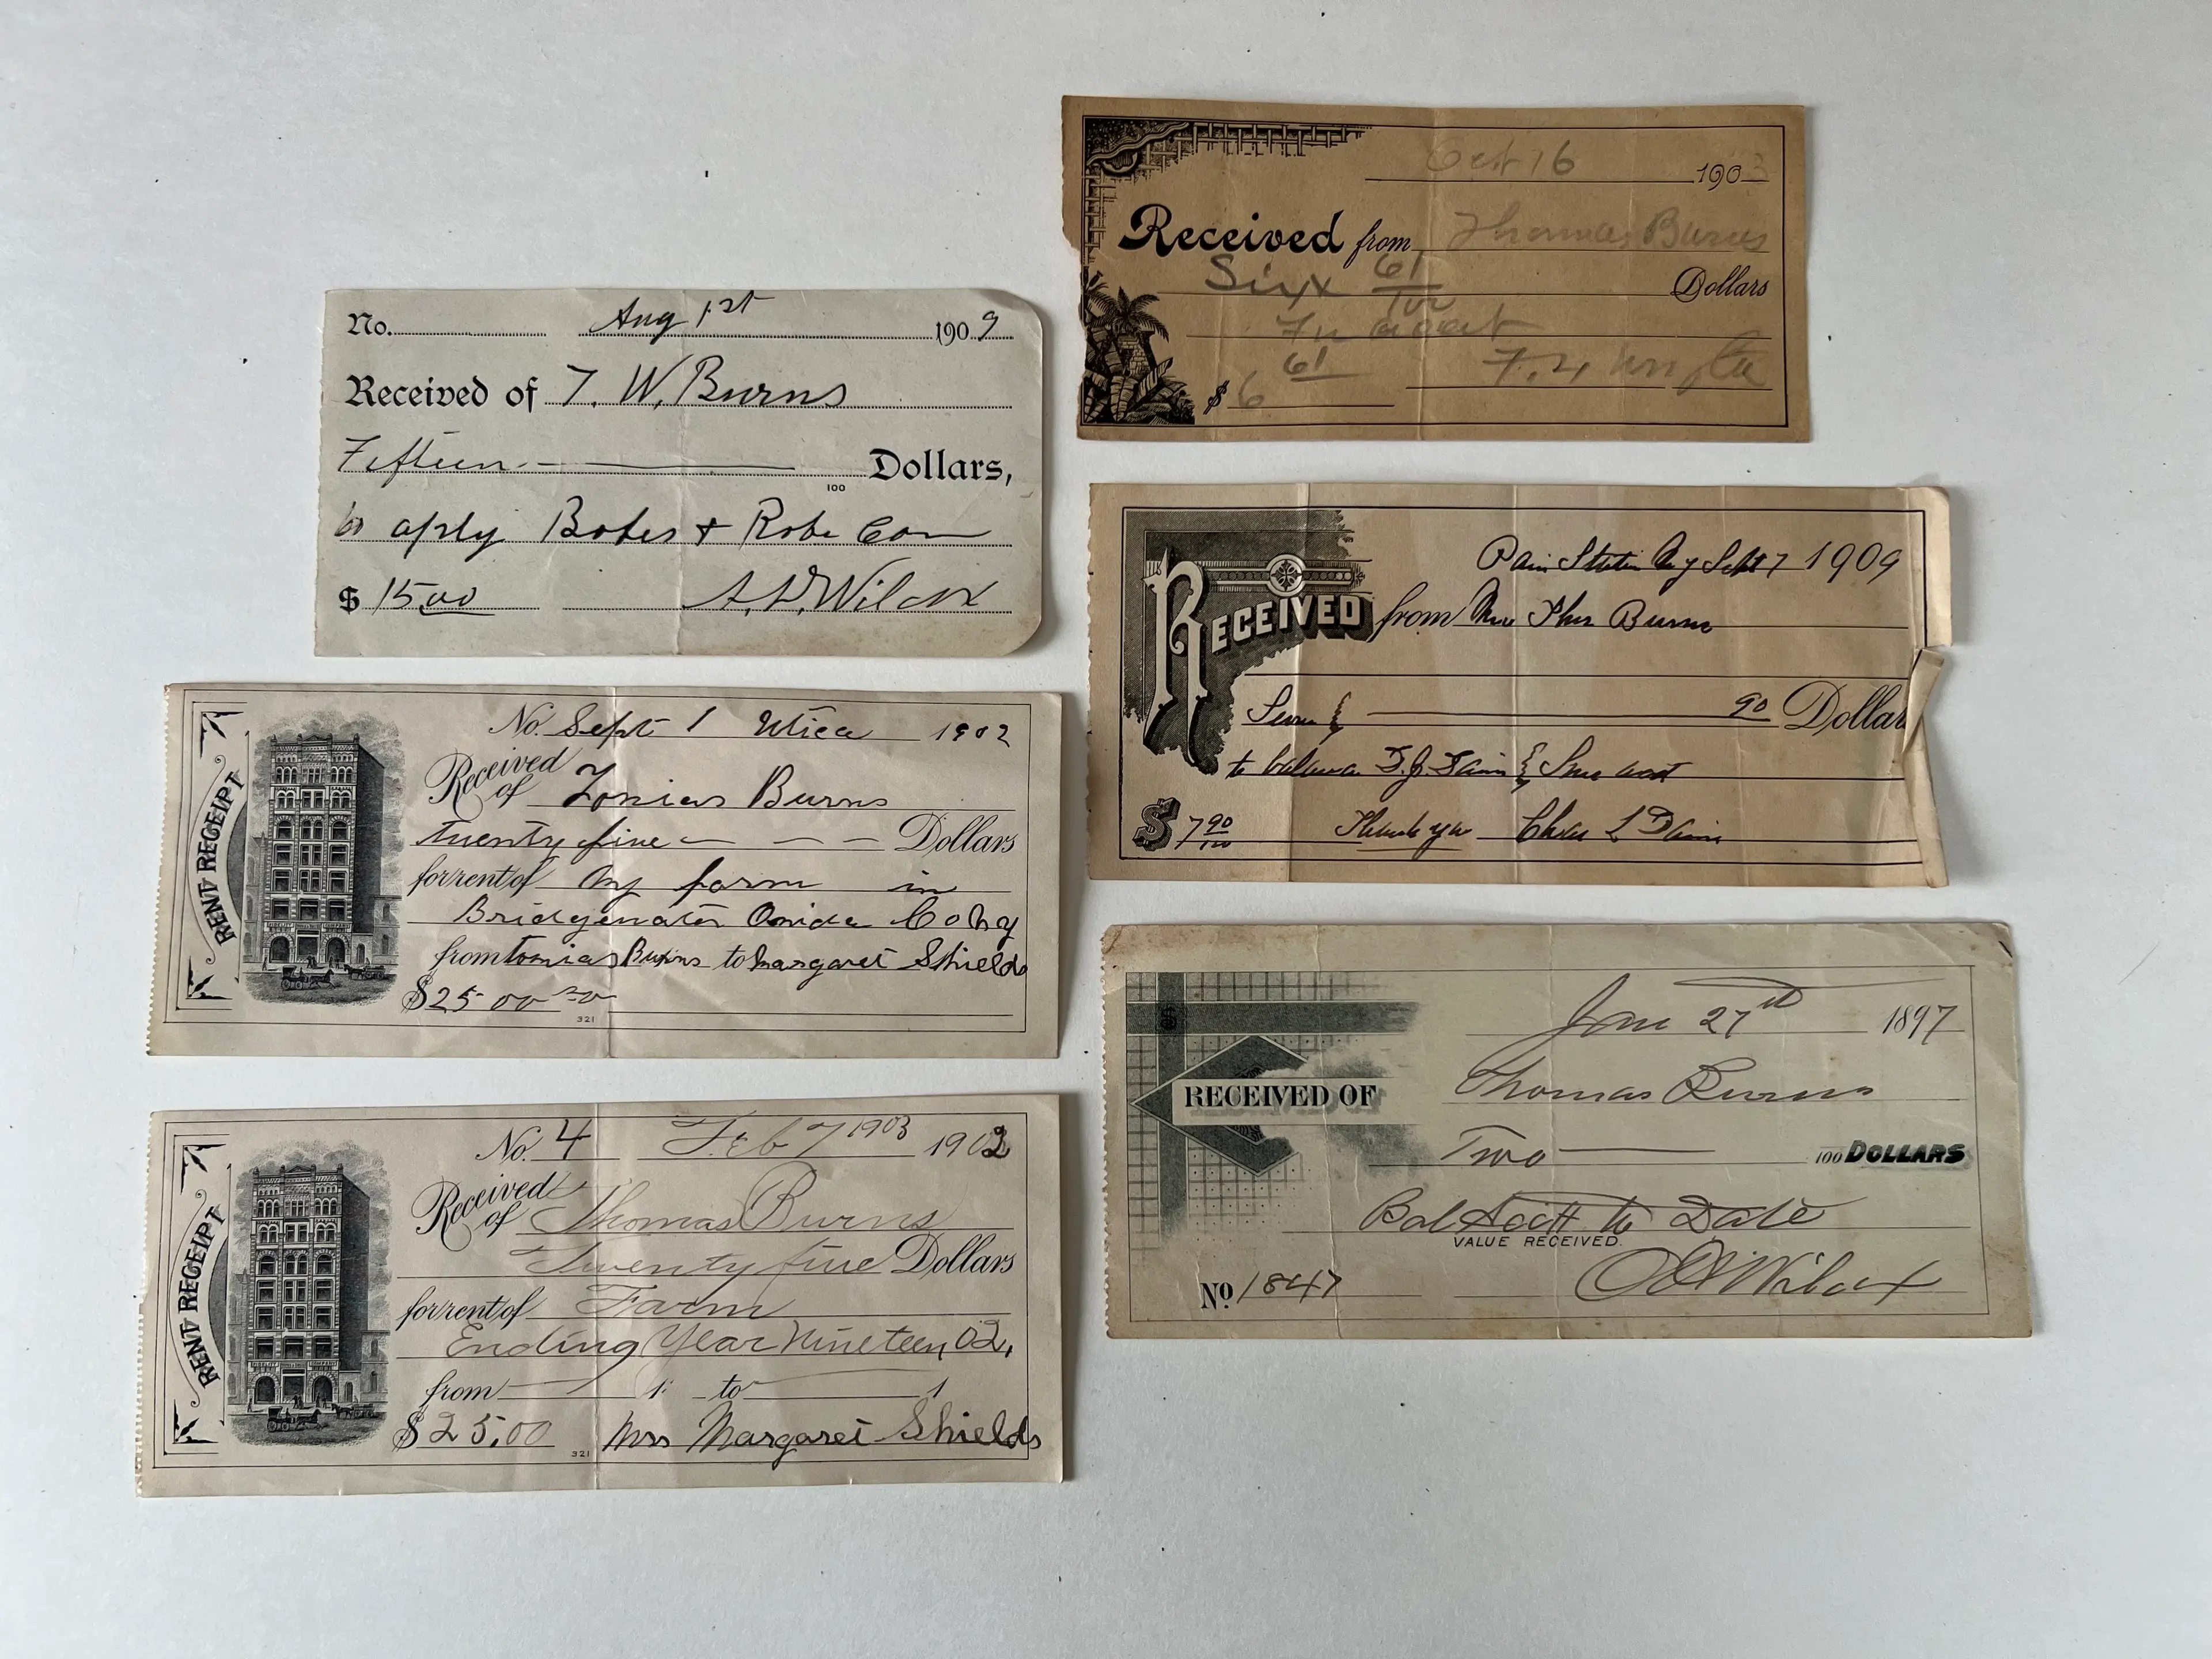 No. Aug 1st 1909
Received of T. W. Burns
Fifteen Dollars,
100
to aply Bobes + Robe Com
$ 15.00 A. D. Wilcox
RENT RECEIPT
No. Sept 1 Utica 1902
Received of Tomias Burns
twenty five Dollars
for rent of my farm in
Bridgewater Onida Co N y
from tomias Burns to Margaret Shields
$25 00
321
RENT RECEIPT
No. 4 Feb 7 1903 1902
Received of Thomas Burns
Twenty five Dollars
for rent of Farm
Ending Year Nineteen, 02.
from 1 to 1
$25.00 Mrs Margaret Shields
321
FIDELITY COMPANY
Oct 16 1903
Received from Thomas Burns
Six 61/100 Dollars
In acct
$ 6 61
Sept 7 1909
RECEIVED from Mr Thos Burns
Seven & 90 Dollar
to balance &
$ 7 90/100 Thank you Chas L
June 27th 1897
RECEIVED OF Thomas Burns
Two 100 DOLLARS
Bal Acct to Date
VALUE RECEIVED.
No 1847 Wilcox